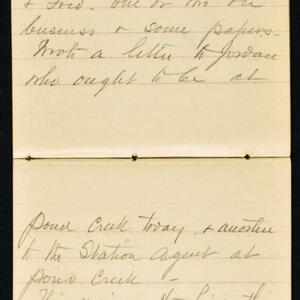 & Fred. one or two on
business & some papers.
Wrote a letter to Jordan
who ought to be at
Pond Creek today & another
to the Station Agent at
Pond Creek —